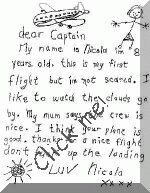 dear Captain
My name is Nicola im 8
years old, this is my first
flight but im not scared. I
like to watch the clouds go
by. My mum says the crew is
nice. I think your plane is
good. thanks a nice flight
don't up the landing
Luv Nicola
xxxx
Click me!